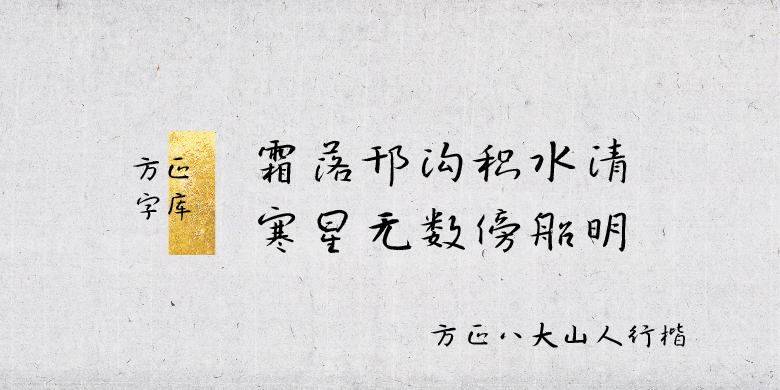 方正
字库
霜落邗沟积水清
寒星无数傍船明
方正八大山人行楷